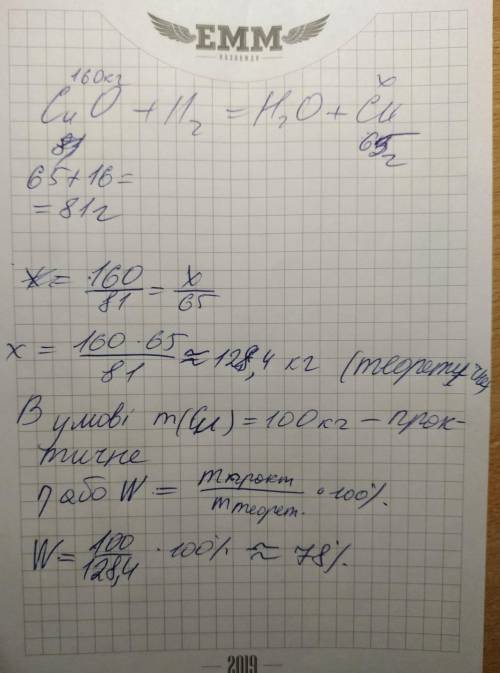 EMM
160кг
CuO + H₂ = H₂O + Cu
x
81
65г
65+16=
=81г
x = 160/81 = x/65
x = 160·65/81 ≈ 128,4 кг (теоретична)
В умові m(Cu) = 100кг – прак-
тичне
η або W = mпракт/mтеорет. · 100%.
W = 100/128,4 · 100% ≈ 78%.
2019